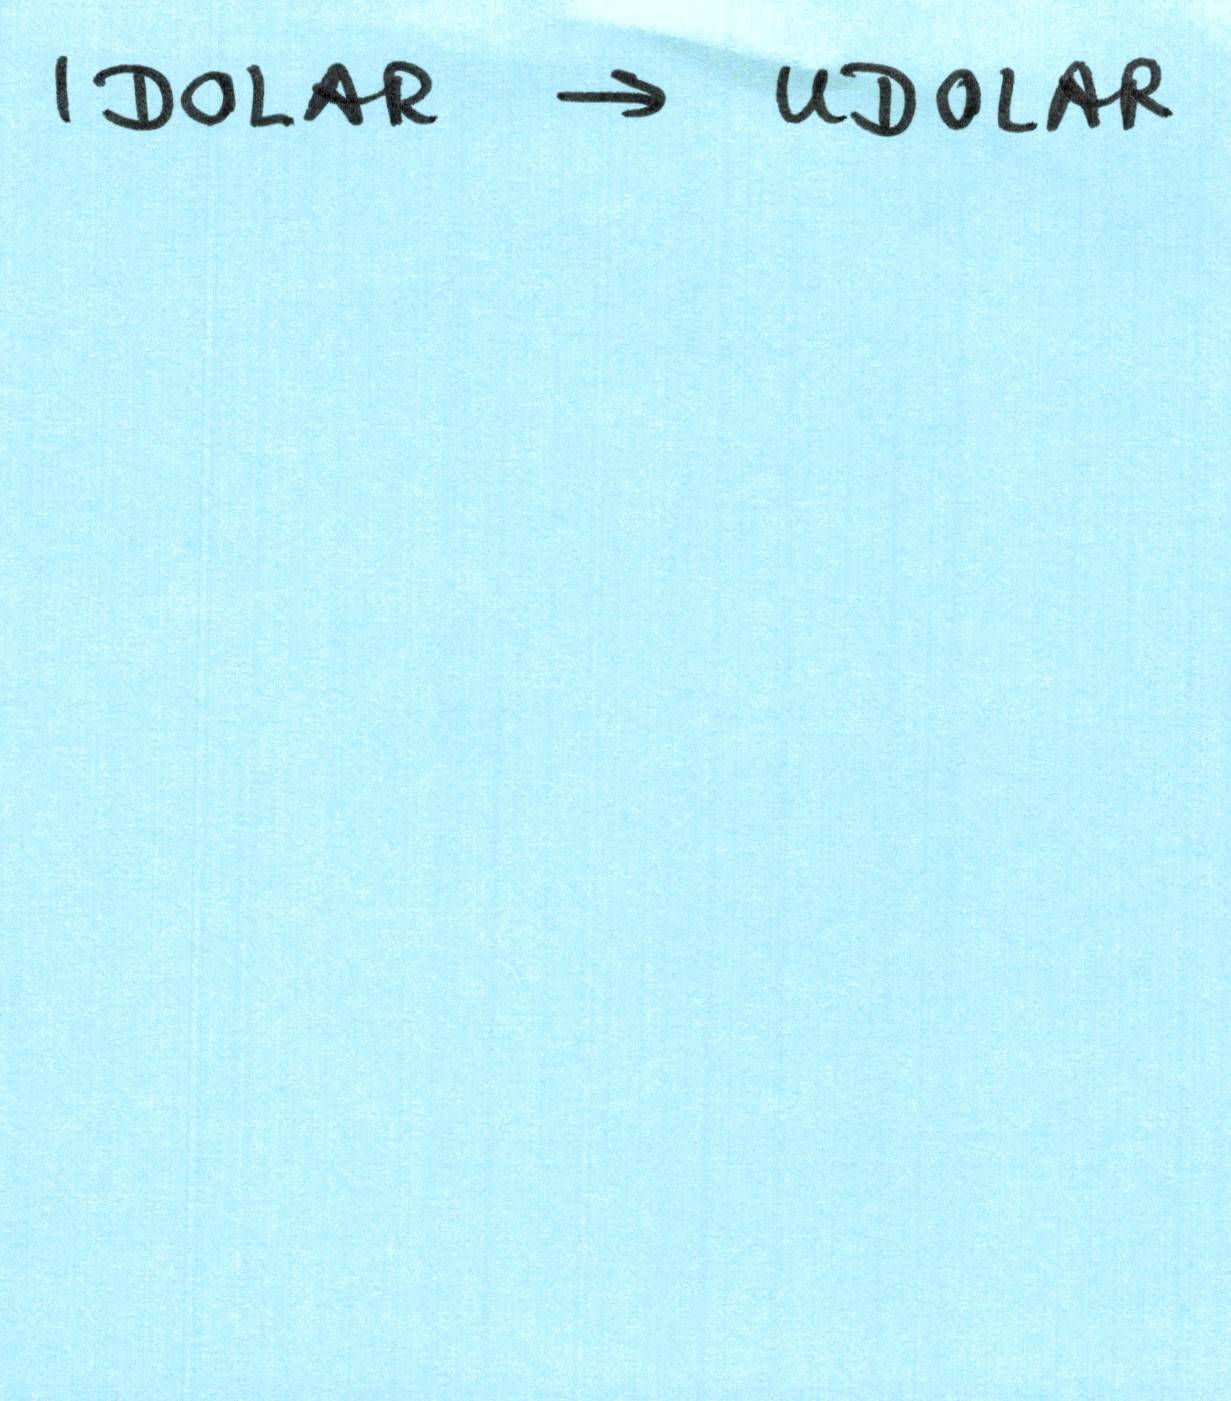 IDOLAR → UDOLAR